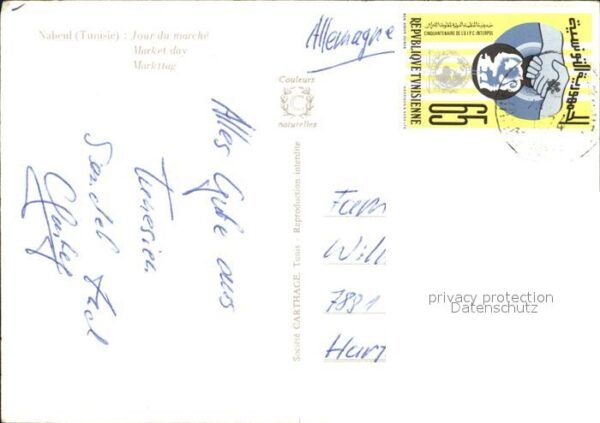 Nabeul (Tunisie) : Jour du marché
Market day
Markttag
Allemagne
Couleurs
naturelles
Alles Gute aus
Tunesien
Société CARTHAGE, Tunis - Reproduction interdite
Fam
Will
7891
Hart
REPUBLIQUE TUNISIENNE
CINQUANTENAIRE DE L'O.I.P.C. INTERPOL
65
الجمهورية التونسية
privacy protection
Datenschutz